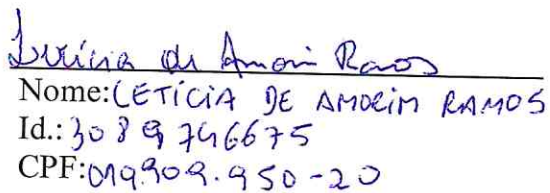 Letícia de Amorim Ramos
Nome: LETÍCIA DE AMORIM RAMOS
Id.: 3089746675
CPF: 019.909.950-20